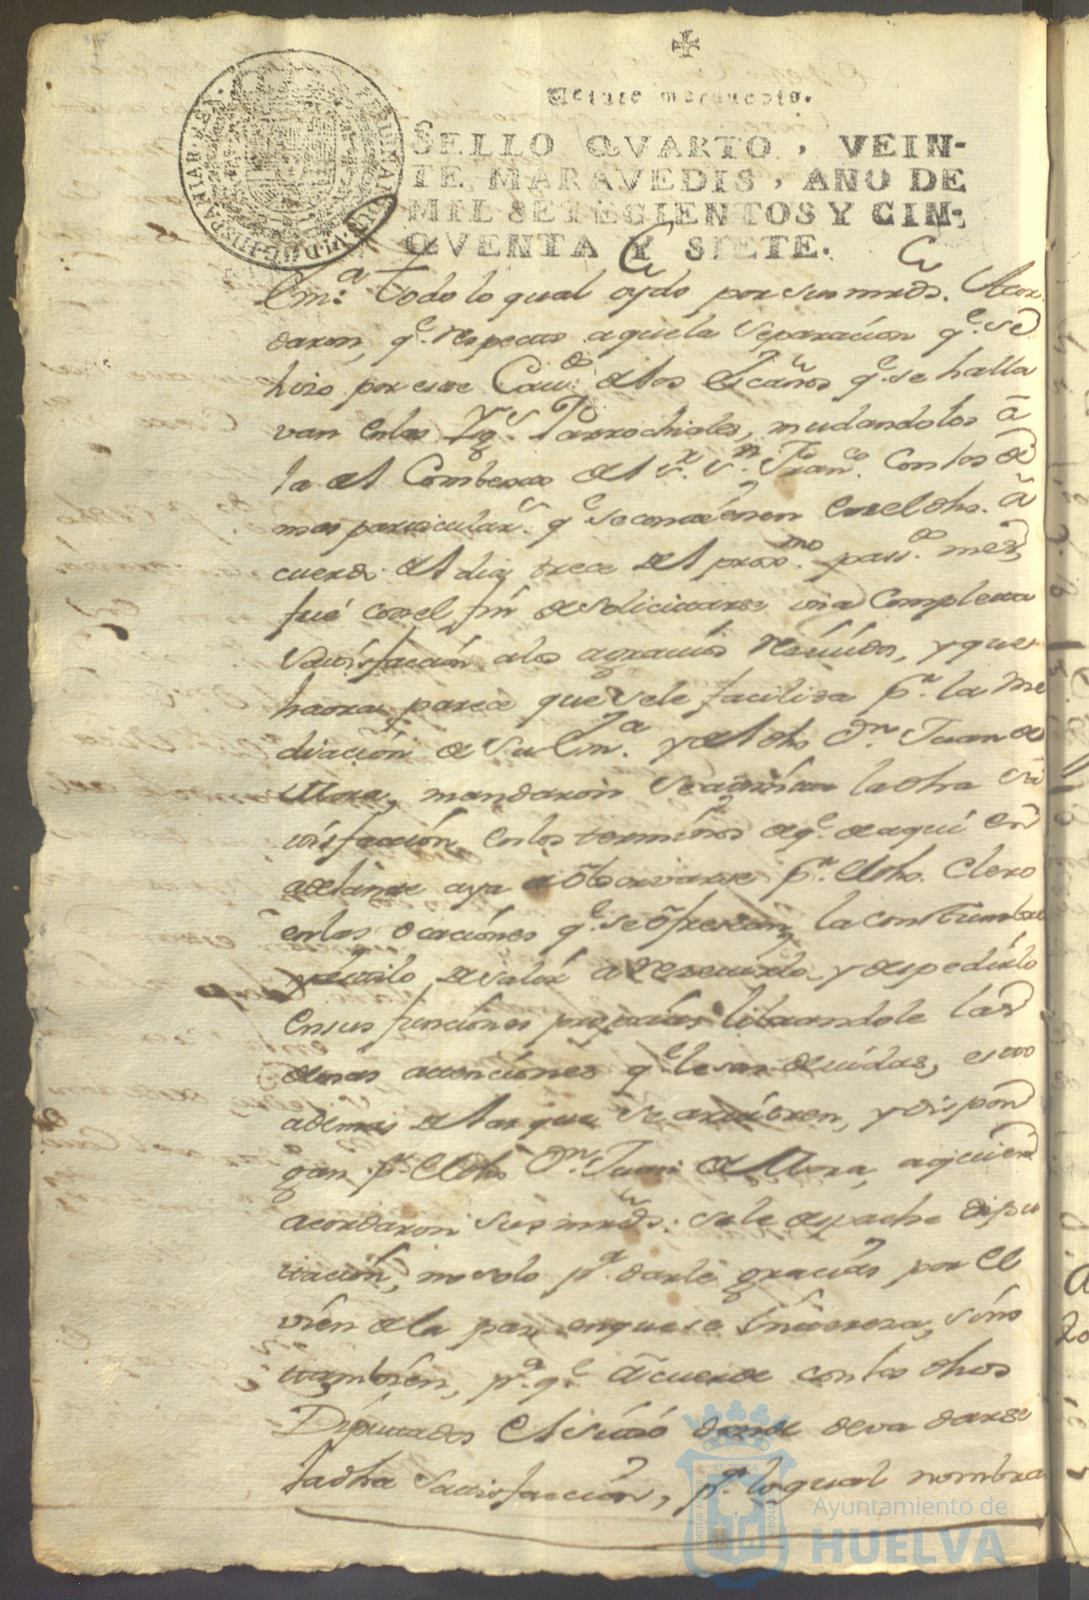 ✠
Veinte maravedis.
SELLO QVARTO, VEIN-
TE MARAVEDIS, AÑO DE
MIL SETECIENTOS Y CIN-
QVENTA Y SIETE.
FERDINANDUS VI D G HISPANIAR REX
Em.ª Todo lo qual oydo por sus mrds. Acor
daron, q.e respecto aquela separacion q.e se
hizo por este Cav.do de los Escaños q.e se halla
van enlas Yg.s Parrochiales, mudandolos â
la del Combento del S.r S.n Fran.co con los de
mas particular.s q.e se contienen enel dho. â
cuerdo del dia trece del prox.mo pass.do mes,
fué conel fin de solicitarse una completa
satisfaccion alos agravios recividos, y que
haora parece que sele facilita p.r la me
diacion de Su Em.ª y del dho D.n Juan de
Mora, mandaron se admita la dha sa
tisfaccion enlos terminos de q.e de aqui en
adelante aya de observarse p.r el dho. Clero
enlas ocaciones q.e se ofrescan, la constumbre
y estilo de salir a recevirlo y despedirlo
ensus funciones propias librandole las
demas atenciones q.e le son devidas, esto
ademas de las que se arbitren, y dispon
gan p.r el dho D.n Juan de Mora, aquien
acordaron sus mrds. sele despache dipu
tación, no solo p.ª darle gracias por el
vien dela paz enquese interesa, sino
también, p.ª q.e âcuerde con los dhos
Diputados el sitio donde deva darse
la dha satisfaccion, p.ª lo qual nombra
Ayuntamiento de
HUELVA